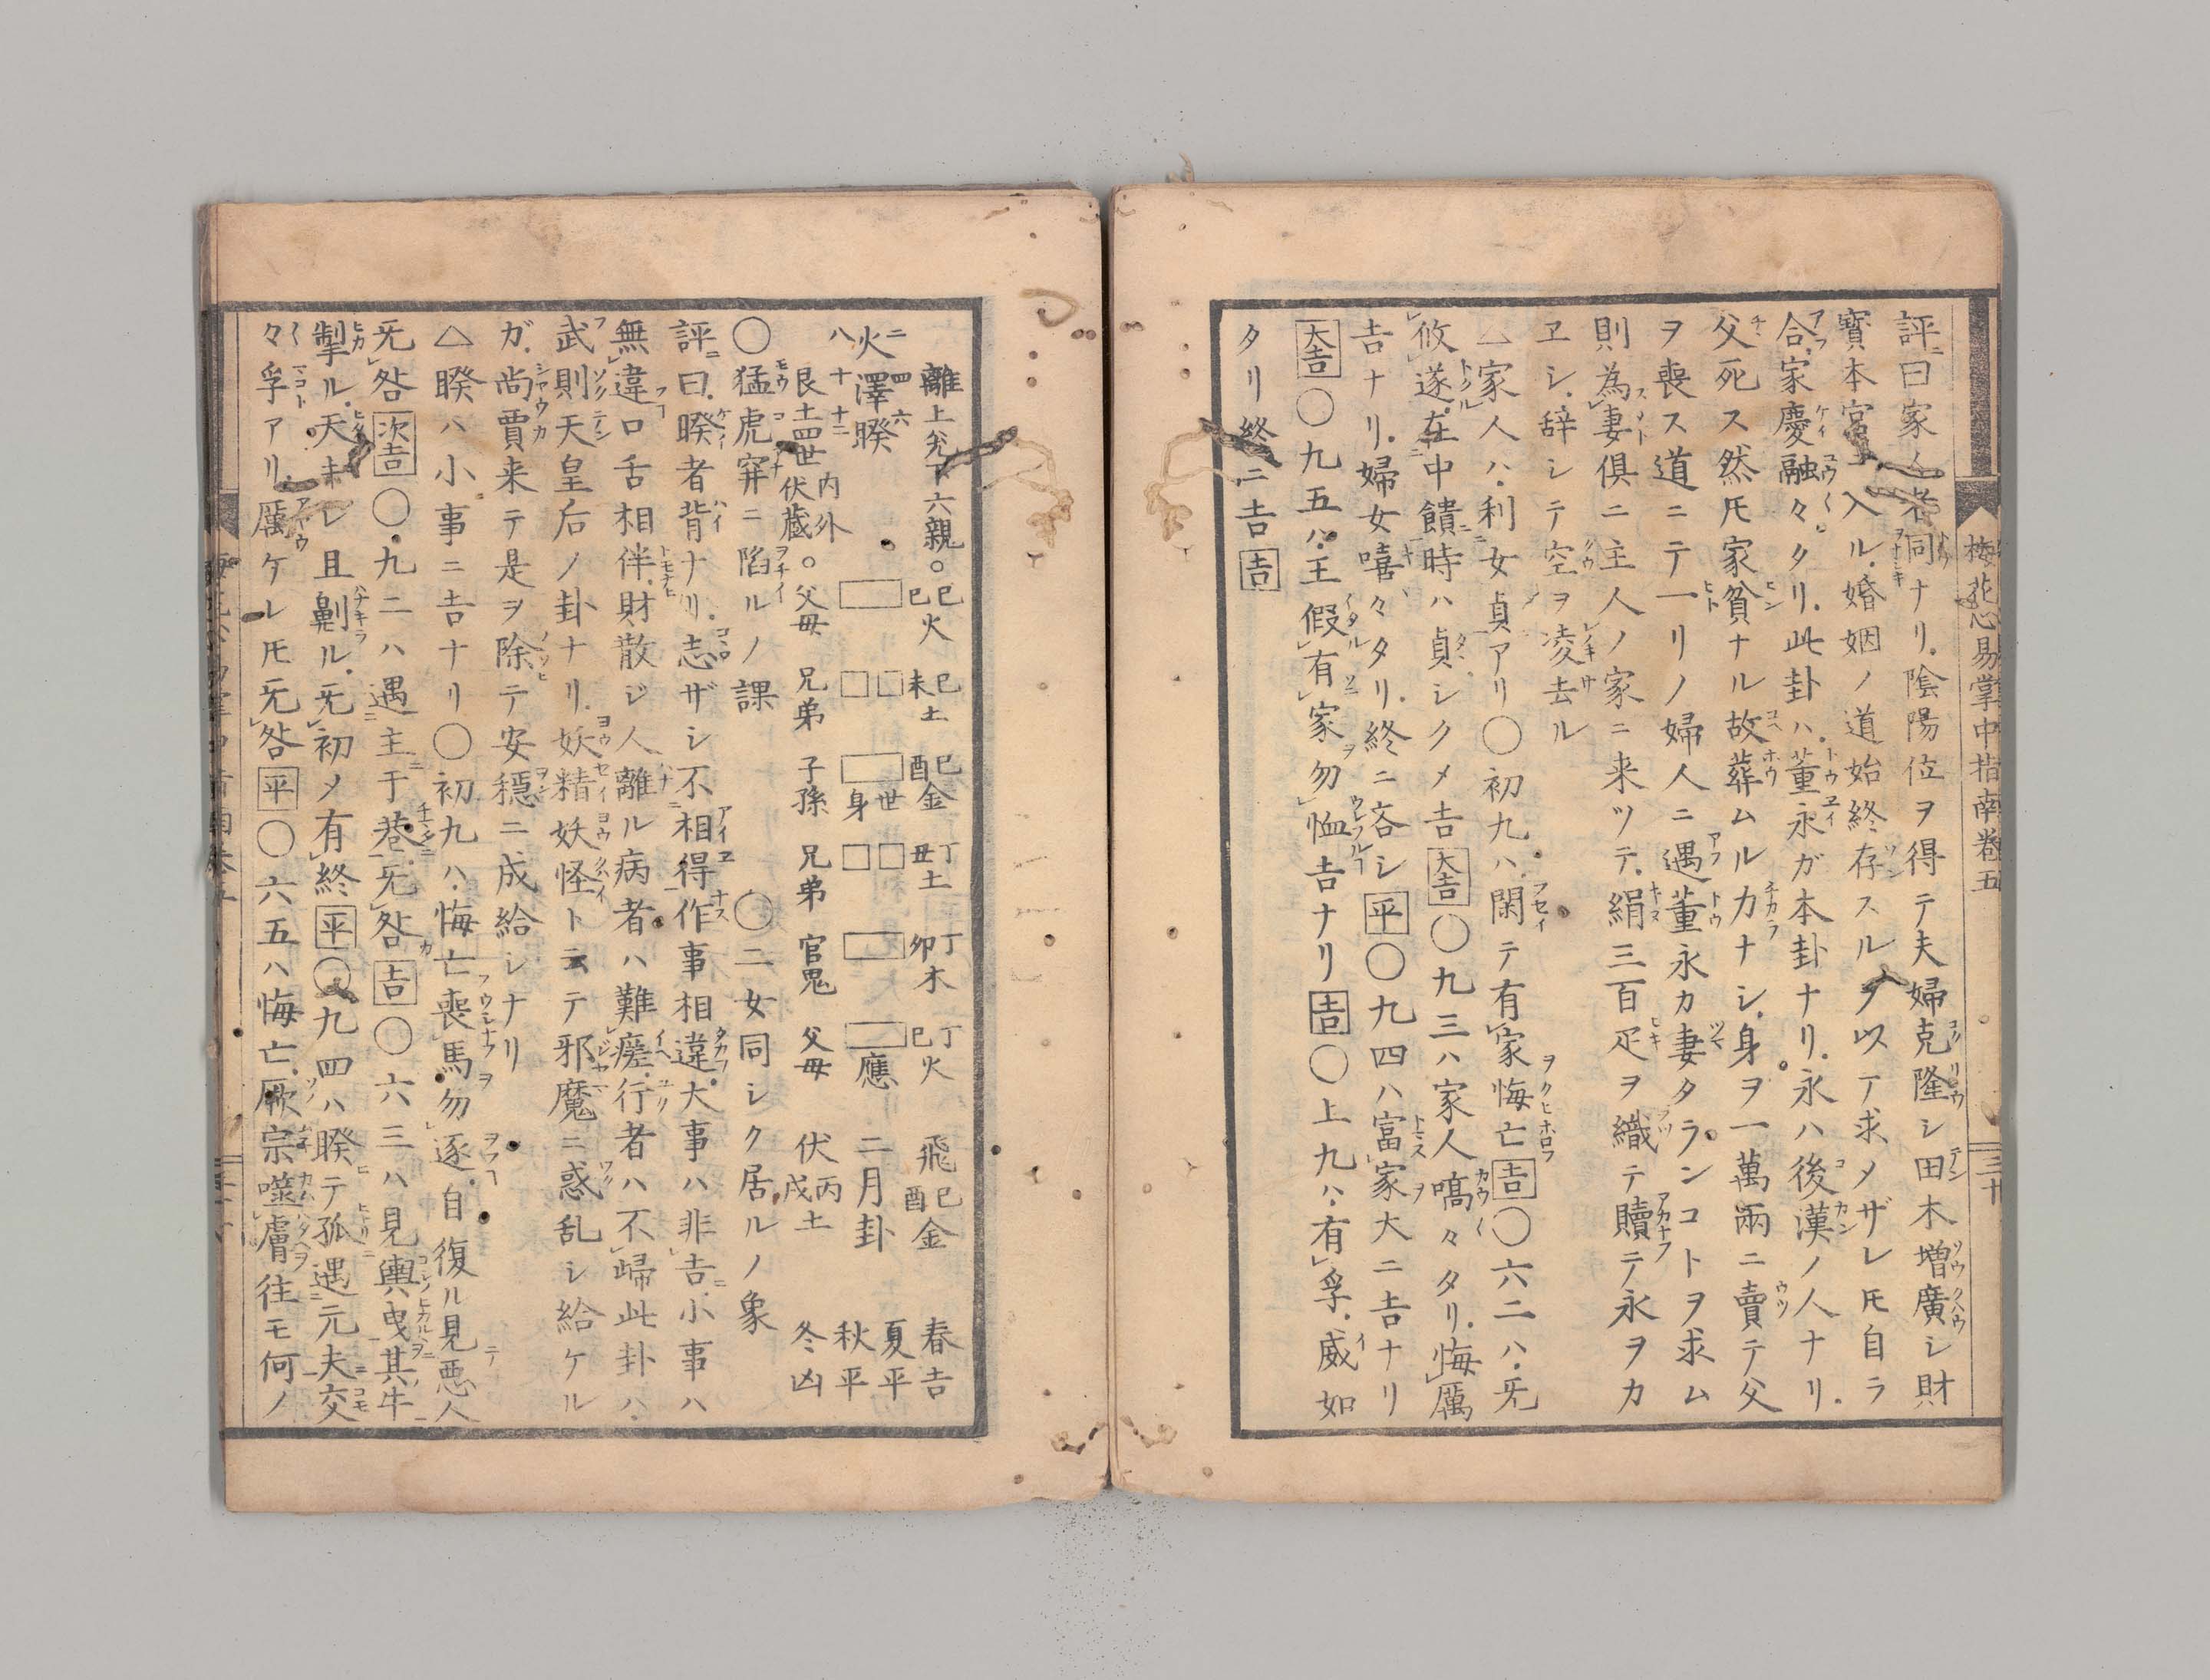 梅花心易掌中指南巻五
三十
評曰家人者同ナリ陰陽位ヲ得テ夫婦克隆シ田木増廣シ財
寳本宮ニ入ル婚姻ノ道始終存スルヲ以テ求メザレ𪜈自ラ
合家慶融々タリ此卦ハ董永ガ本卦ナリ永ハ後漢ノ人ナリ
父死ス然𪜈家貧ナル故葬ムル力ナシ身ヲ一萬兩ニ賣テ父
ヲ喪ス道ニテ一リノ婦人ニ遇董永カ妻タランコトヲ求ム
則為妻倶ニ主人ノ家ニ来ツテ絹三百疋ヲ織テ贖テ永ヲカ
ヱシ辞シテ空ヲ凌去ル
△家人ハ利女貞アリ〇初九ハ閑テ有家悔亡吉〇六二ハ旡
攸遂在中饋時ハ貞シクメ吉大吉〇九三ハ家人嗃々タリ悔厲
吉ナリ婦女嘻々タリ終ニ吝シ平〇九四ハ富家大ニ吉ナリ
大吉〇九五ハ王假有家勿恤吉ナリ吉〇上九ハ有孚威如
タリ終ニ吉吉
離上兌下六親。巳巳火 巳未土 巳酉金 丁丑土 丁卯木 丁巳火 飛巳酉金 春吉
二火八 四澤十 六睽十二 内外 世身 應 二月卦 夏平 秋平
艮土四世伏蔵。父母 兄弟 子孫 兄弟 官鬼 父母 伏丙戌土 冬凶
〇猛虎穽ニ陷ルノ課 〇二女同シク居ルノ象
評曰睽者背ナリ志ザシ不相得作事相違大事ハ非吉小事ハ
無違口舌相伴財散ジ人離ル病者ハ難瘥行者ハ不歸此卦ハ
武則天皇后ノ卦ナリ妖精妖怪トニテ邪魔ニ惑乱シ給ケル
ガ尚賈来テ是ヲ除テ安穏ニ成給シナリ
△睽ハ小事ニ吉ナリ〇初九ハ悔亡喪馬勿逐自復ル見悪人
旡咎次吉〇九二ハ遇主于巷旡咎吉〇六三ハ見輿曳其牛
掣ル天キレ且劓ル旡初メ有終平〇九四ハ睽テ孤遇元夫交
々孚アリ厲ケレ𪜈旡咎平〇六五ハ悔亡厥宗噬膚往モ何ノ